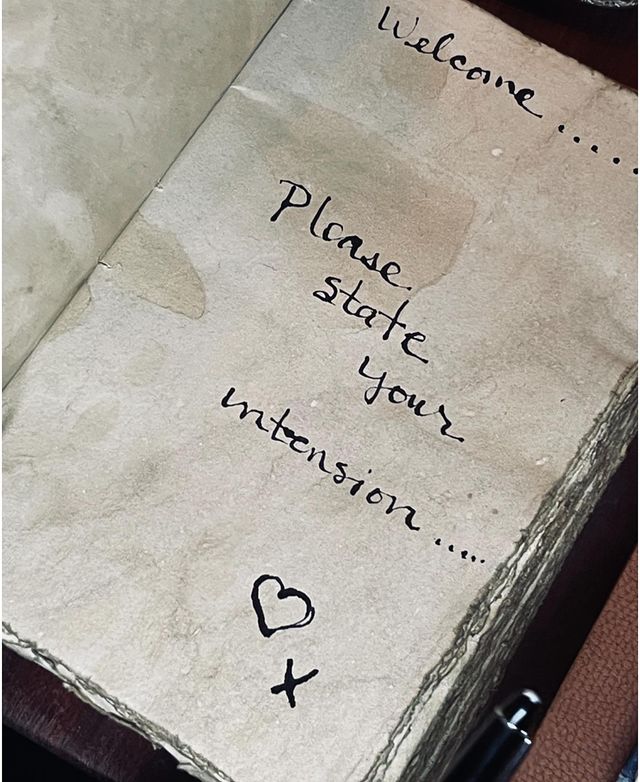 Welcome.....
Please
state
your
intension.....
♡
x